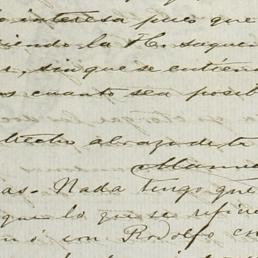 interesa pues que
siendo la H. saque
sin que se entien
cuanto sea posib
trecho abrazo de tu
Manu
as. Nada tengo que
que lo que se refier
con Rodolfo con